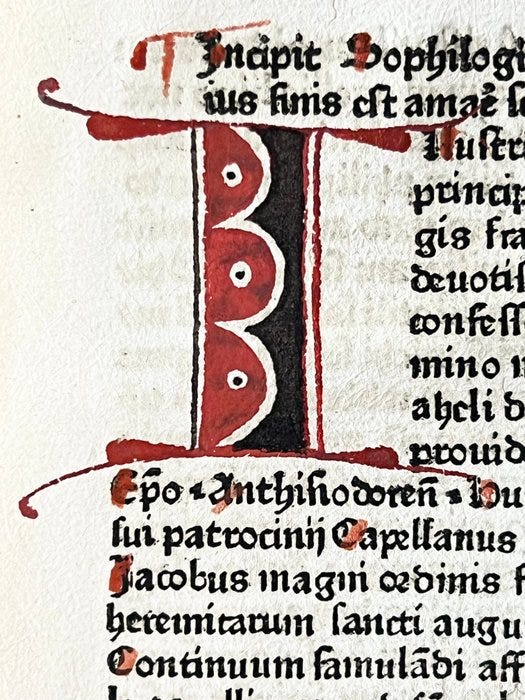 Incipit Sophilogi
ius finis est amaē
Illustr
princip
gis fra
deuotis
confess
mino
aheli d
prouid
Ep̄o Anthisiodoren̄
sui patrocinij Capellanus
Jacobus magni ordinis f
heremitarum sancti augu
Continuum famulādi aff